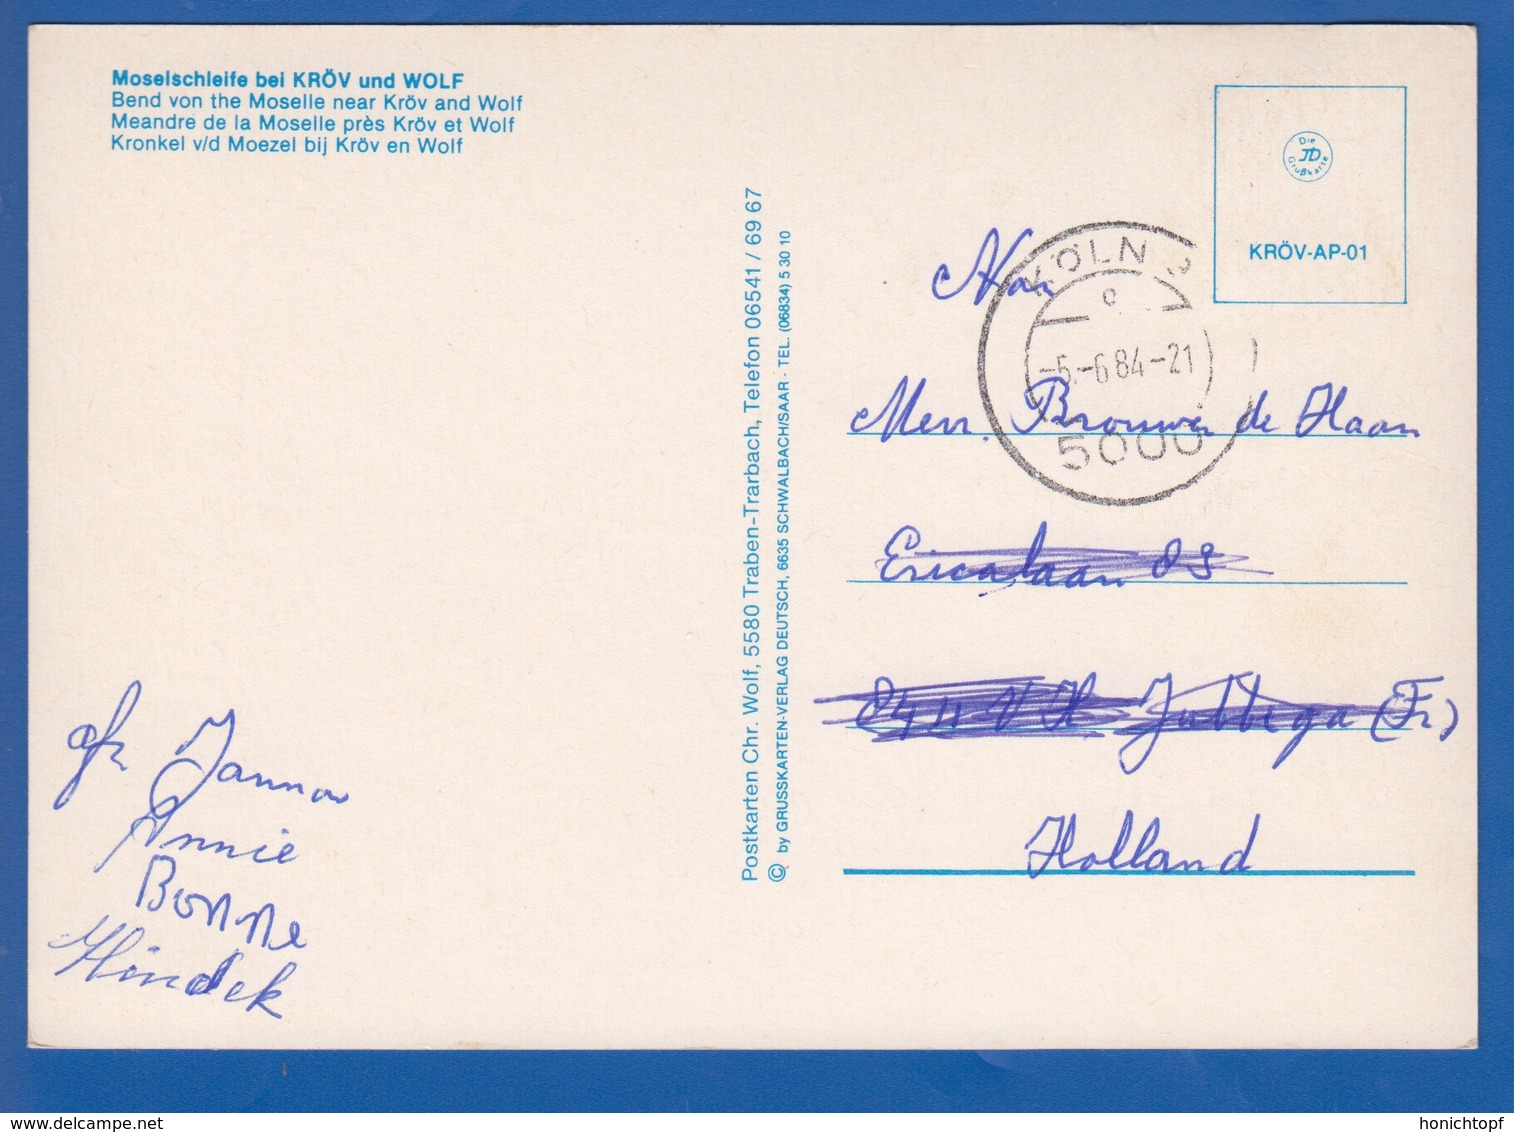 Moselschleife bei KRÖV und WOLF
Bend von the Moselle near Kröv and Wolf
Meandre de la Moselle près Kröv et Wolf
Kronkel v/d Moezel bij Kröv en Wolf
Die
JD
Grußkarte
KRÖV-AP-01
KÖLN
c
-5.-6 84-21
5000
Aan
Brouwer de Haan
Ericalaan
Jubbega (Fr)
Holland
Postkarten Chr. Wolf, 5580 Traben-Trarbach, Telefon 06541 / 69 67
© by GRUSSKARTEN-VERLAG DEUTSCH, 6635 SCHWALBACH/SAAR · TEL. (06834) 5 30 10
Annie
Bonne
delcampe.net
honichtopf